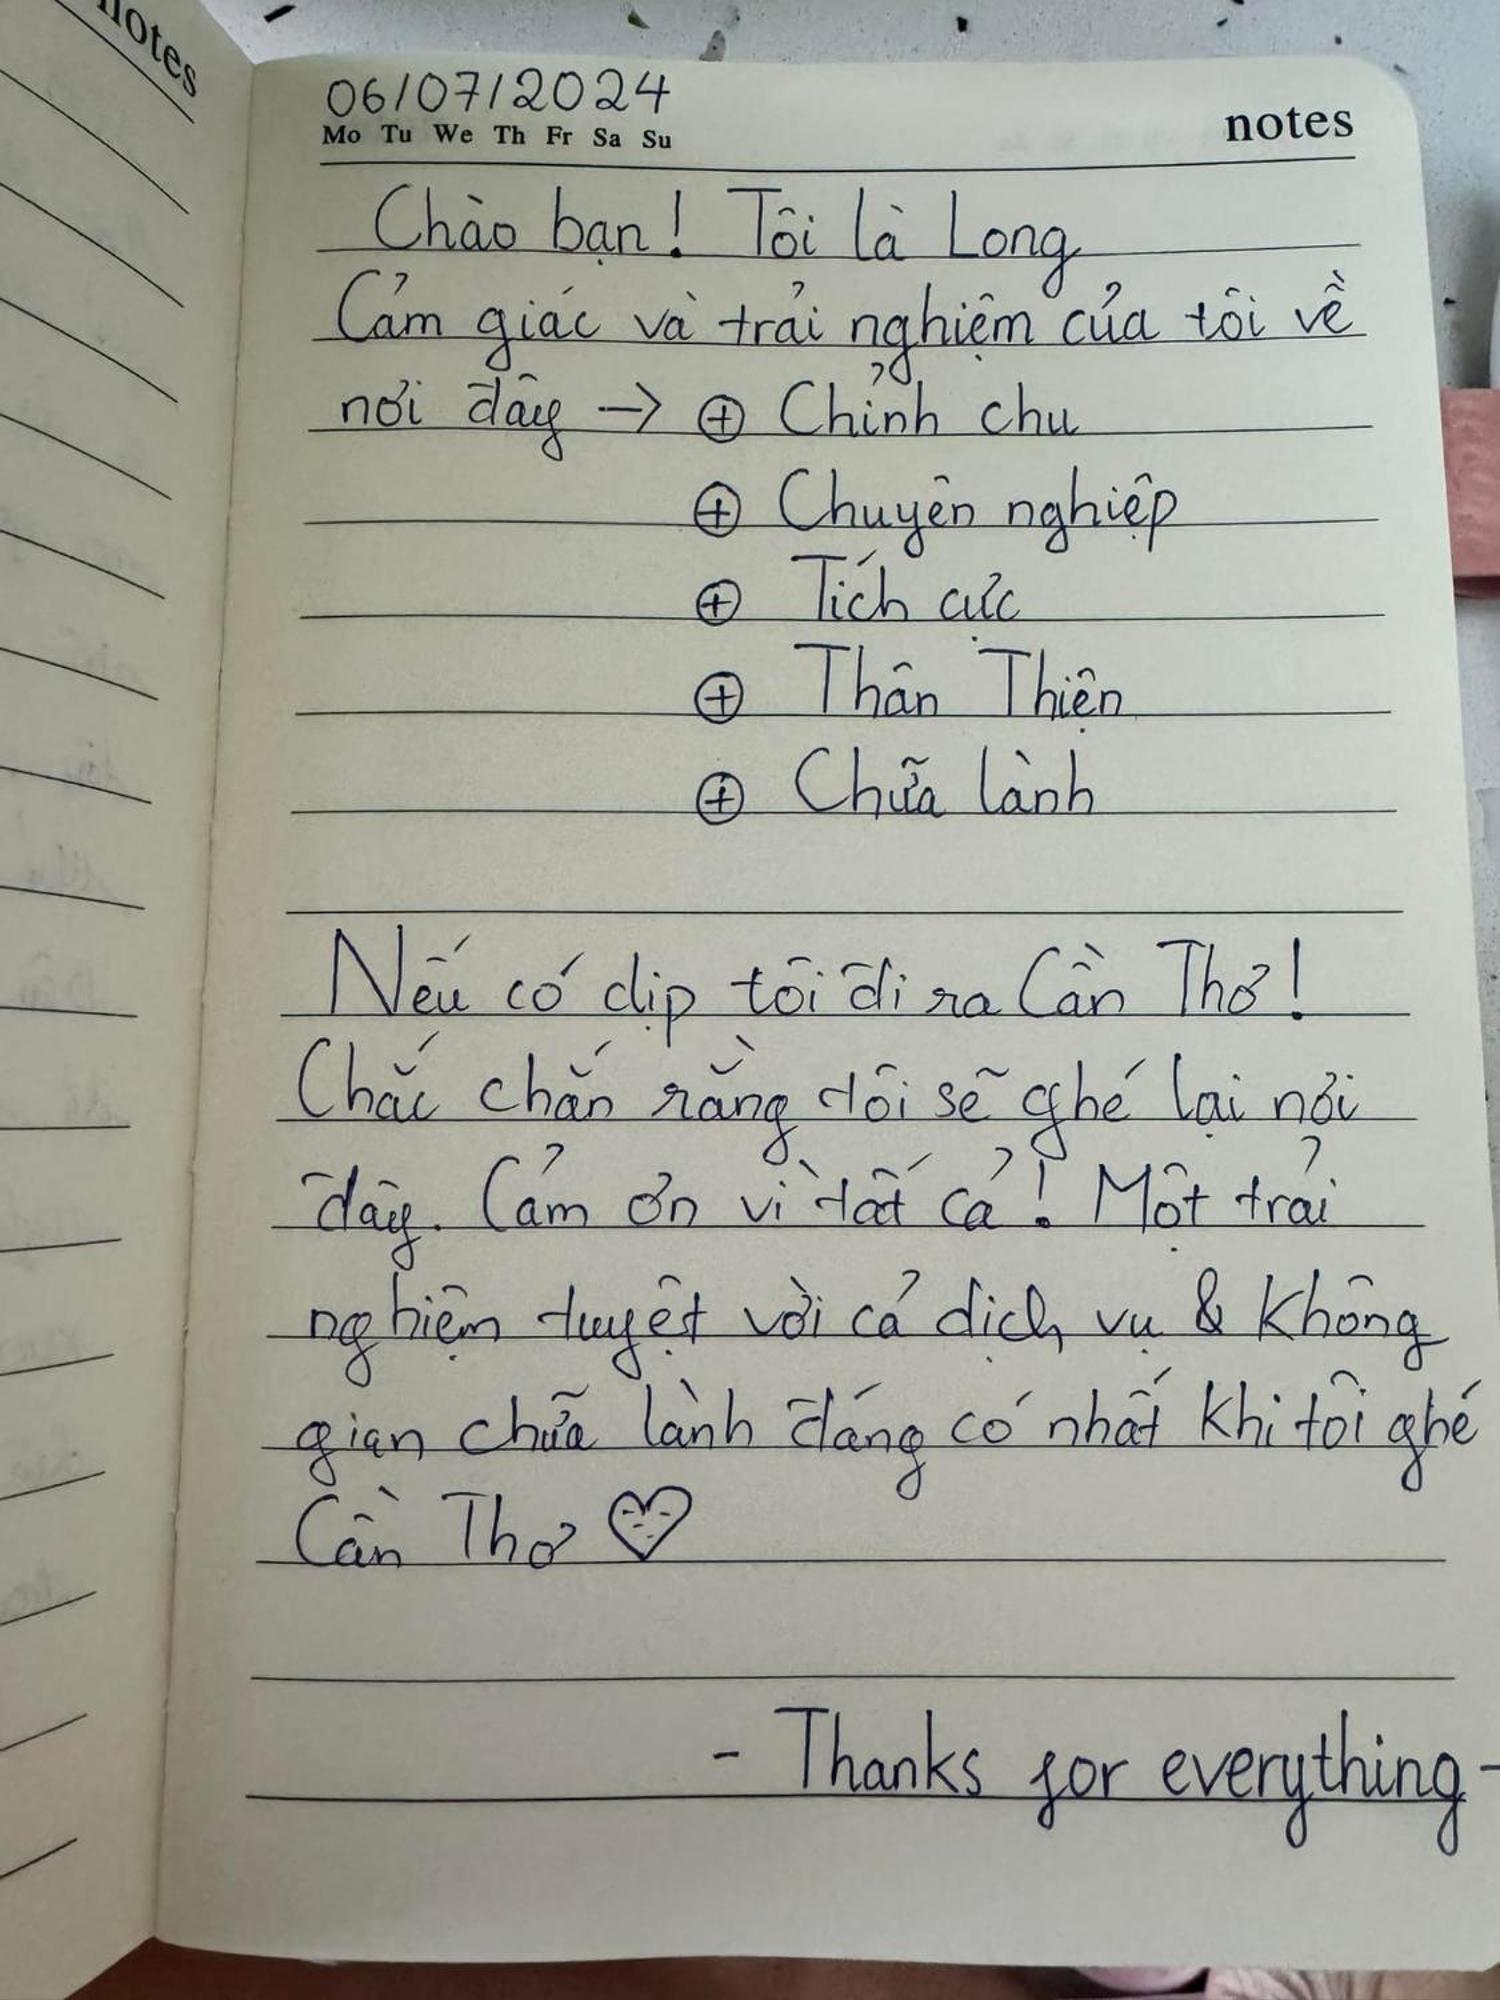 notes
06/07/2024
Mo Tu We Th Fr Sa Su
notes
Chào bạn! Tôi là Long
Cảm giác và trải nghiệm của tôi về
nơi đây → ⊕ Chỉnh chu
⊕ Chuyên nghiệp
⊕ Tích cực
⊕ Thân Thiện
⊕ Chữa lành
Nếu có dịp tôi đi ra Cần Thơ!
Chắc chắn rằng tôi sẽ ghé lại nơi
đây. Cảm ơn vì tất cả! Một trải
nghiệm tuyệt vời cả dịch vụ & không
gian chữa lành đáng có nhất khi tôi ghé
Cần Thơ ♡
- Thanks for everything -